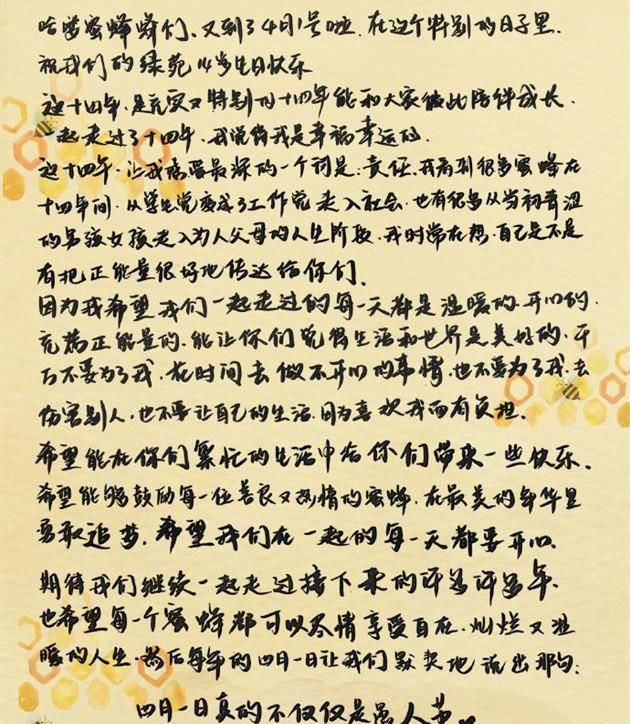 哈啰蜜蜂蜂们、又到了4月1号啦,在这个特别的日子里.
祝我们的绿苑小学生日快乐
这十四年,是充实又特别的十四年能和大家彼此陪伴成长.
一起走过了十四年,我觉得我是幸福幸运的.
这十四年,让我感受最深的一个词是:责任.我看到很多蜜蜂在
十四年间,从学生党变成了工作党走入社会,也有很多从当初青涩
的男孩女孩走入为人父母的人生阶段,我时常在想,自己是不是
有把正能量很好地传达给你们、
因为我希望我们一起走过的每一天都是温暖的.开心的.
充满正能量的.能让你们觉得生活和世界是美好的.千
万不要为了我,花时间去做不开心的事情,也不要为了我,去
伤害别人,也不要让自己的生活,因为喜欢我而有负担.
希望能在你们繁忙的生活中给你们带来一些快乐.
希望能够鼓励每一位善良又热情的蜜蜂,在最美的年华里
勇敢追梦,希望我们在一起的每一天都要开心、
期待我们继续一起走过接下来的许多许多年、
也希望每一个蜜蜂都可以尽情享受自在.灿烂又温
暖的人生.然后每年的四月一日让我们默契地说出那句:
四月一日真的不仅仅是愚人节。